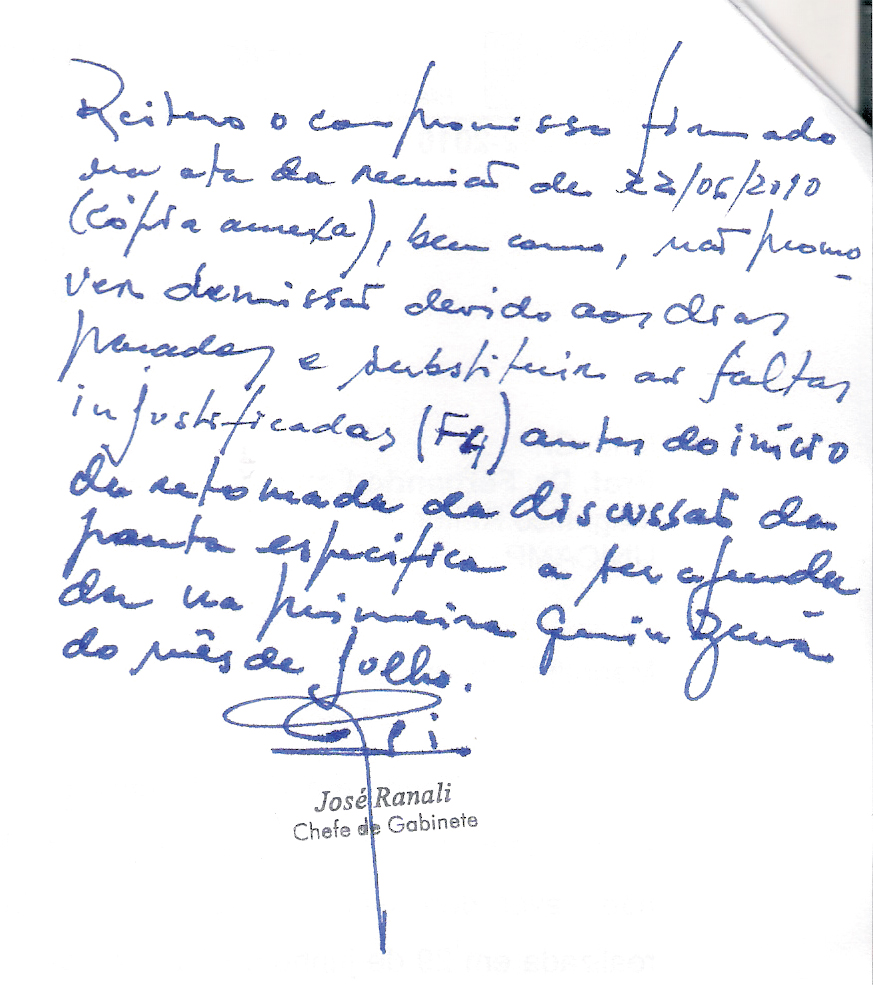 Reitero o compromisso firmado
na ata da reunião de 22/06/2010
(cópia anexa), bem como, não promo-
ver demissão devido aos dias
parados e substituir as faltas
injustificadas (F4) antes do início
da retomada da discussão da
pauta específica a ser agenda
da na primeira quinzena
do mês de Julho.
José Ranali
Chefe de Gabinete